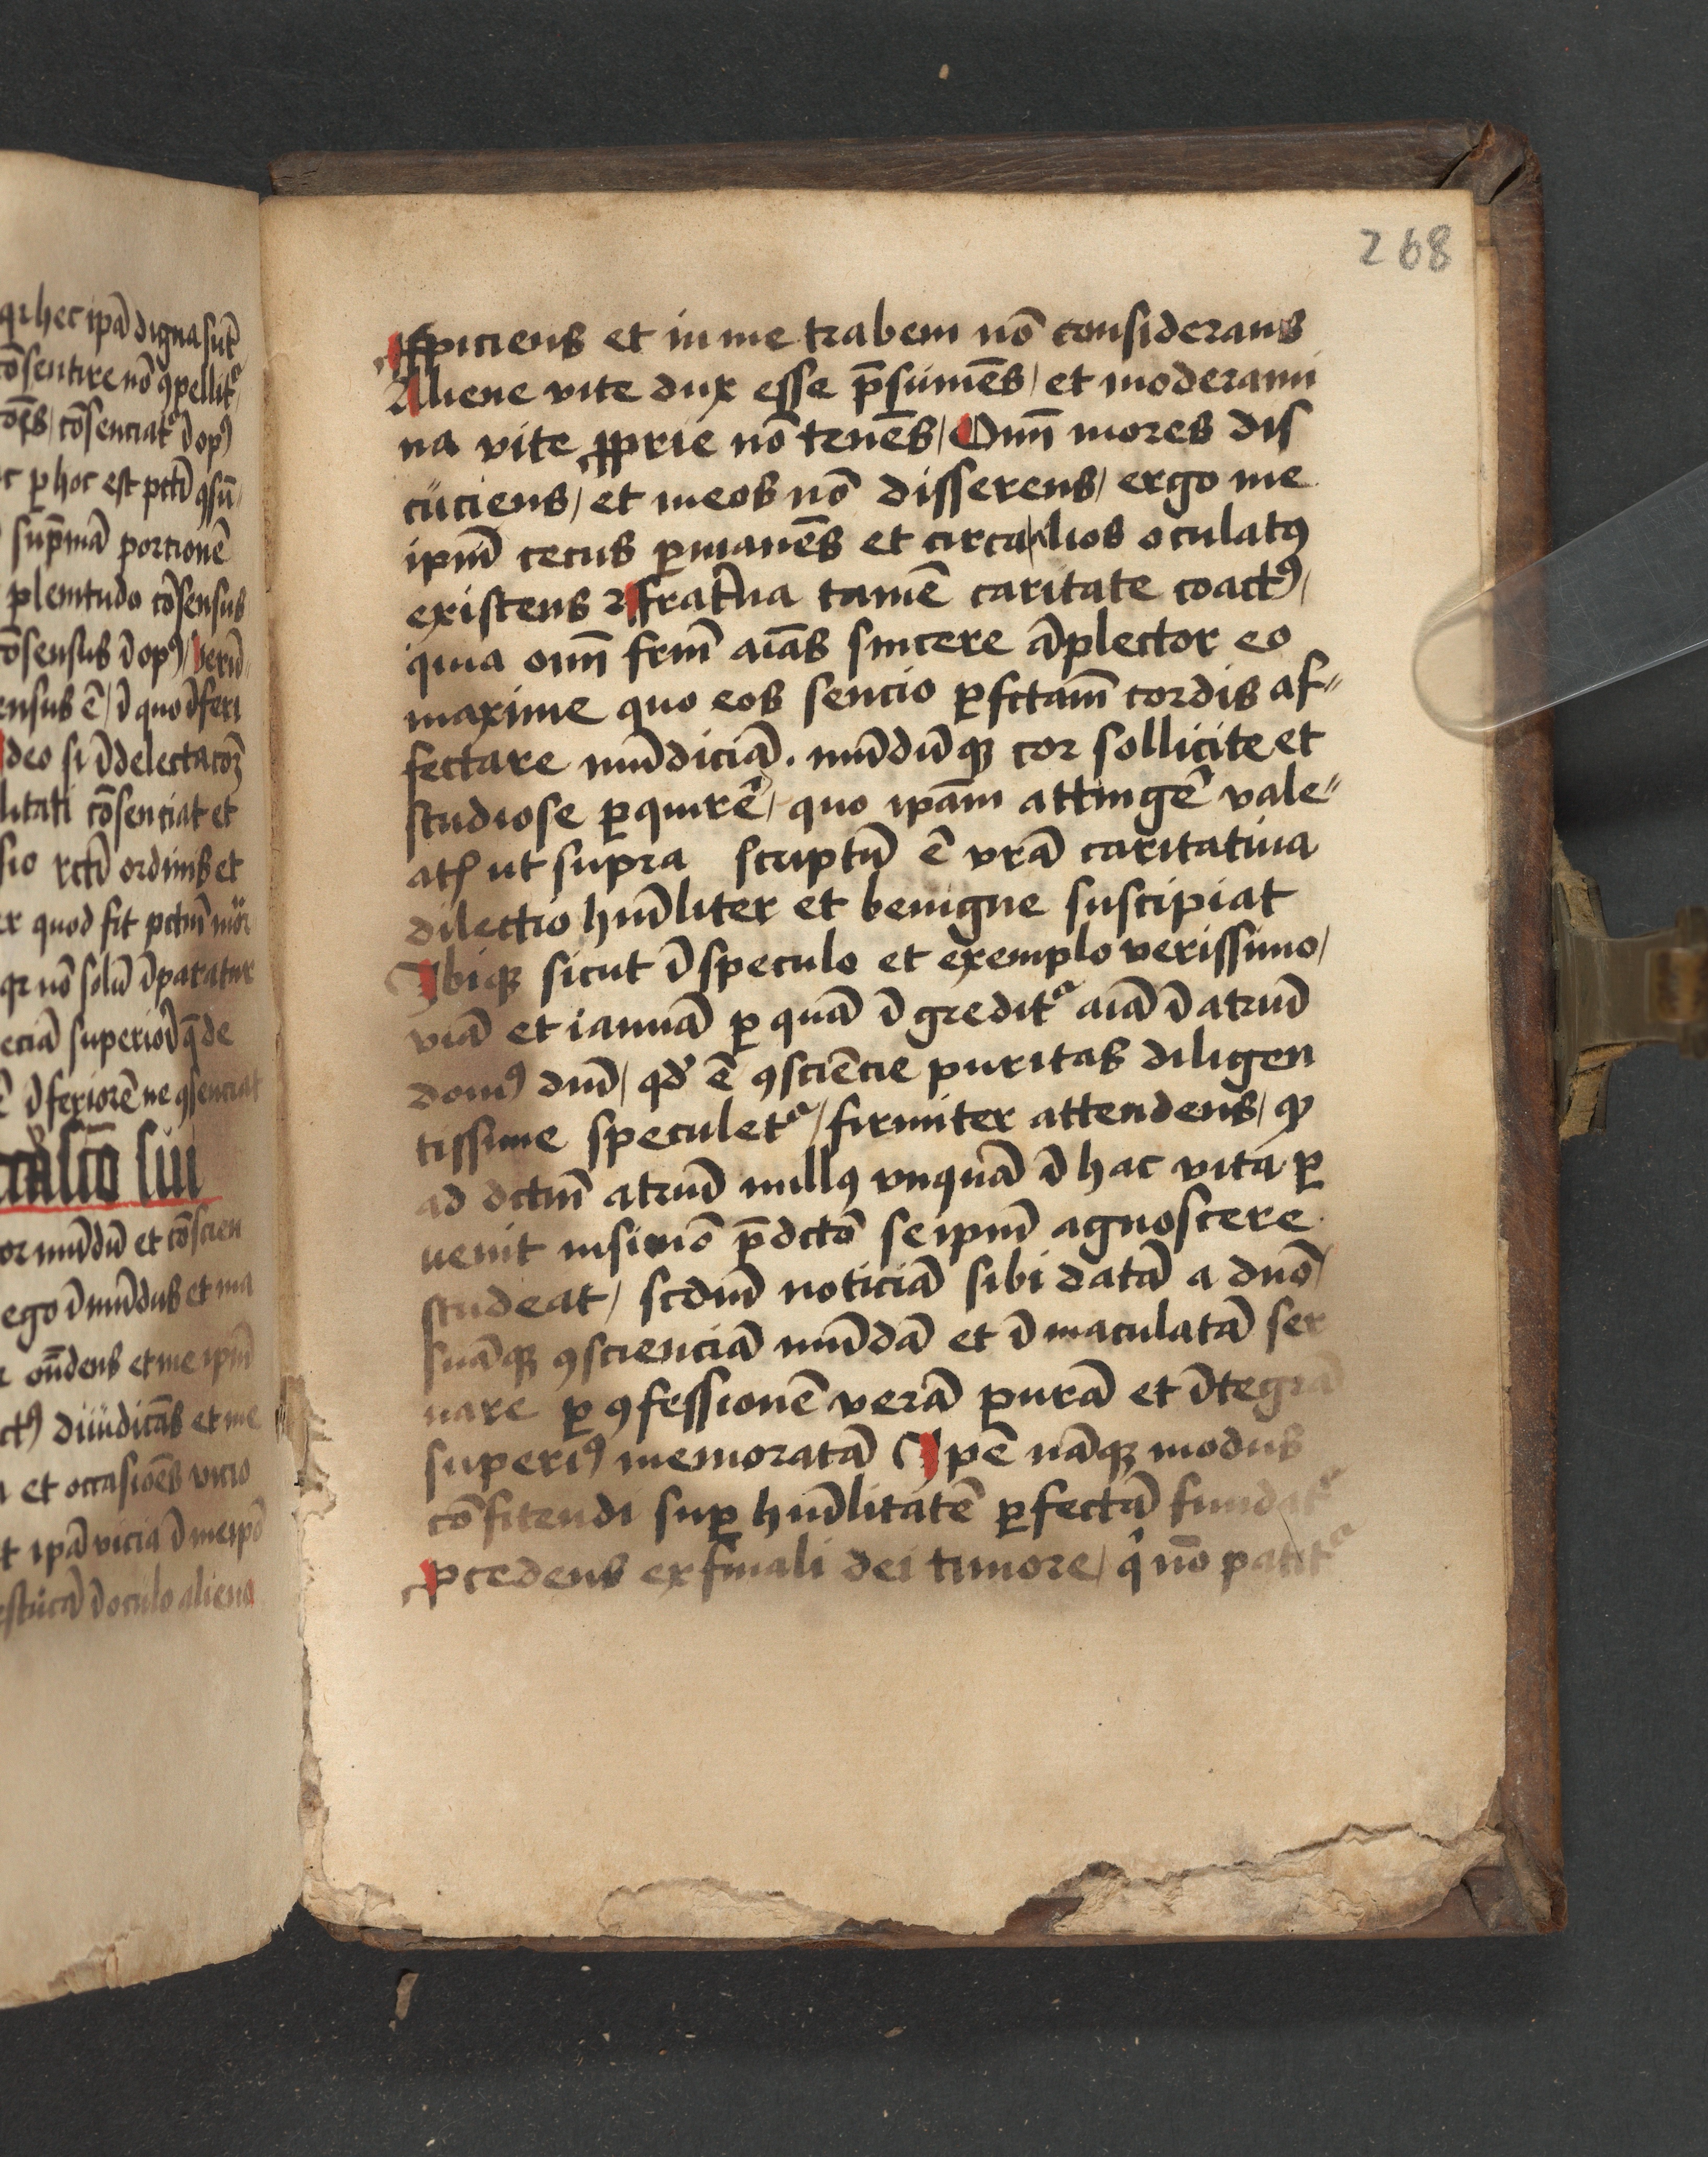 qr hec ipā digna sūt
cōsentire nō ꝯpellit᷑
cōsenciat᷑ ī opꝰ
ꝑ hoc est pctī
sup̄mā portionē
plenitudo cōsensus
cōsensus ī opꝰ / verū
ensus ē / ī quo īferi
deo si ī delectacōꝫ
litati cōsenciat et
sio rctī ordinis et
quod fit pctm̄ mor
qr nō solū īparatur
eciā superiorī q̄ de
īferiorē ne ꝯsenciat
or mūdū et cōscien
ego īmūdus et ma
on̄dens et me ipm̄
diiudicās et me
et occasiōes vicio
ipā vicia ī meipō
estucā ī oculo alieno
268
ꝓspiciens et in me trabem nō considerans
Aliene vite dux esse p̄sumēs / et moderami
na vite ꝓprie nō tenēs / Om̄i mores dis
cuciens / et meos nō disserens / ergo me
ipm̄ cecus ꝑmanēs et circa alios oculatꝰ
existens ꝛ frat̄na tamē caritate coactꝰ /
quia om̄ frm̄ aīas sincere āplector eo
maxime quo eos sencio ꝑfctam̄ cordis af⸗
fectare mūdiciā . mūdūqꝫ cor sollicite et
studiose ꝑquirē / quo ipām attingē vale⸗
at / ut supra scriptū ē vrā caritatiua
dilectio hūiliter et benigne suscipiat
Ibiqꝫ sicut ī speculo et exemplo verissimo /
viā et ianuā ꝑ quā īgredit᷑ aīā ī atriū
domꝰ dnī / qd̓ ē ꝯsciēcie puritas diligen
tissime speculet᷑ / firmiter attendens / ꝙ
ad dctm̄ atriū nullꝰ vnquā ī hac vita ꝑ
uenit nisi mō p̄dctō seipm̄ agnoscere
studeat / scdm̄ noticiā sibi datā a dnō /
suāqꝫ ꝯscienciā mūdā et īmaculatā ser
uare ꝑ ꝯfessionē verā purā et ītegrā
superiꝰ memoratā Ipē nāqꝫ modus
cōfitendi suꝑ hūilitatē ꝑfectā fundat᷑
ꝓcedens ex finali dei timore / qͥ nō patit᷑